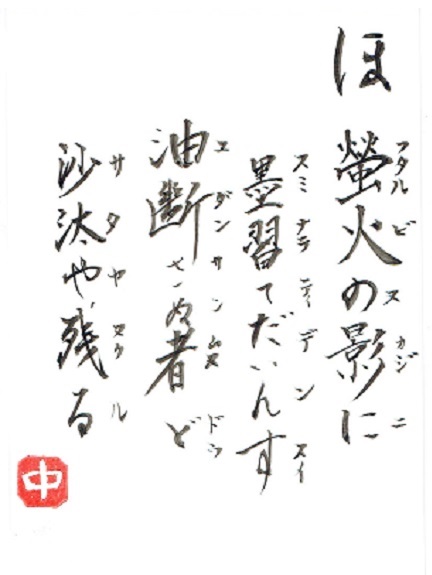 ほ
フタルビヌカジニ
螢火の影に
スミナラティデンスイ
墨習てだいんす
ユダンサンムヌドゥ
油断さぬ者ど
サタヤヌクル
沙汰や残る
中